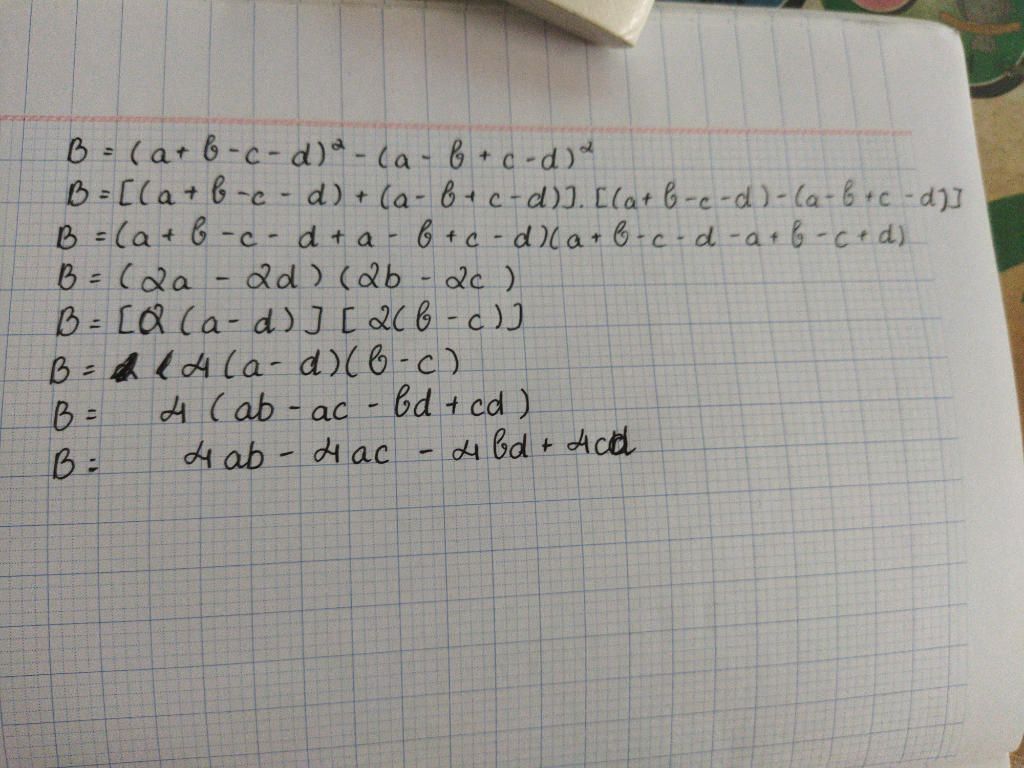 B = (a + b - c - d)² - (a - b + c - d)²
B = [(a + b - c - d) + (a - b + c - d)] . [(a + b - c - d) - (a - b + c - d)]
B = (a + b - c - d + a - b + c - d)(a + b - c - d - a + b - c + d)
B = (2a - 2d) (2b - 2c)
B = [2 (a - d)] [2(b - c)]
B = 4 (a - d)(b - c)
B = 4 (ab - ac - bd + cd)
B = 4ab - 4ac - 4bd + 4cd